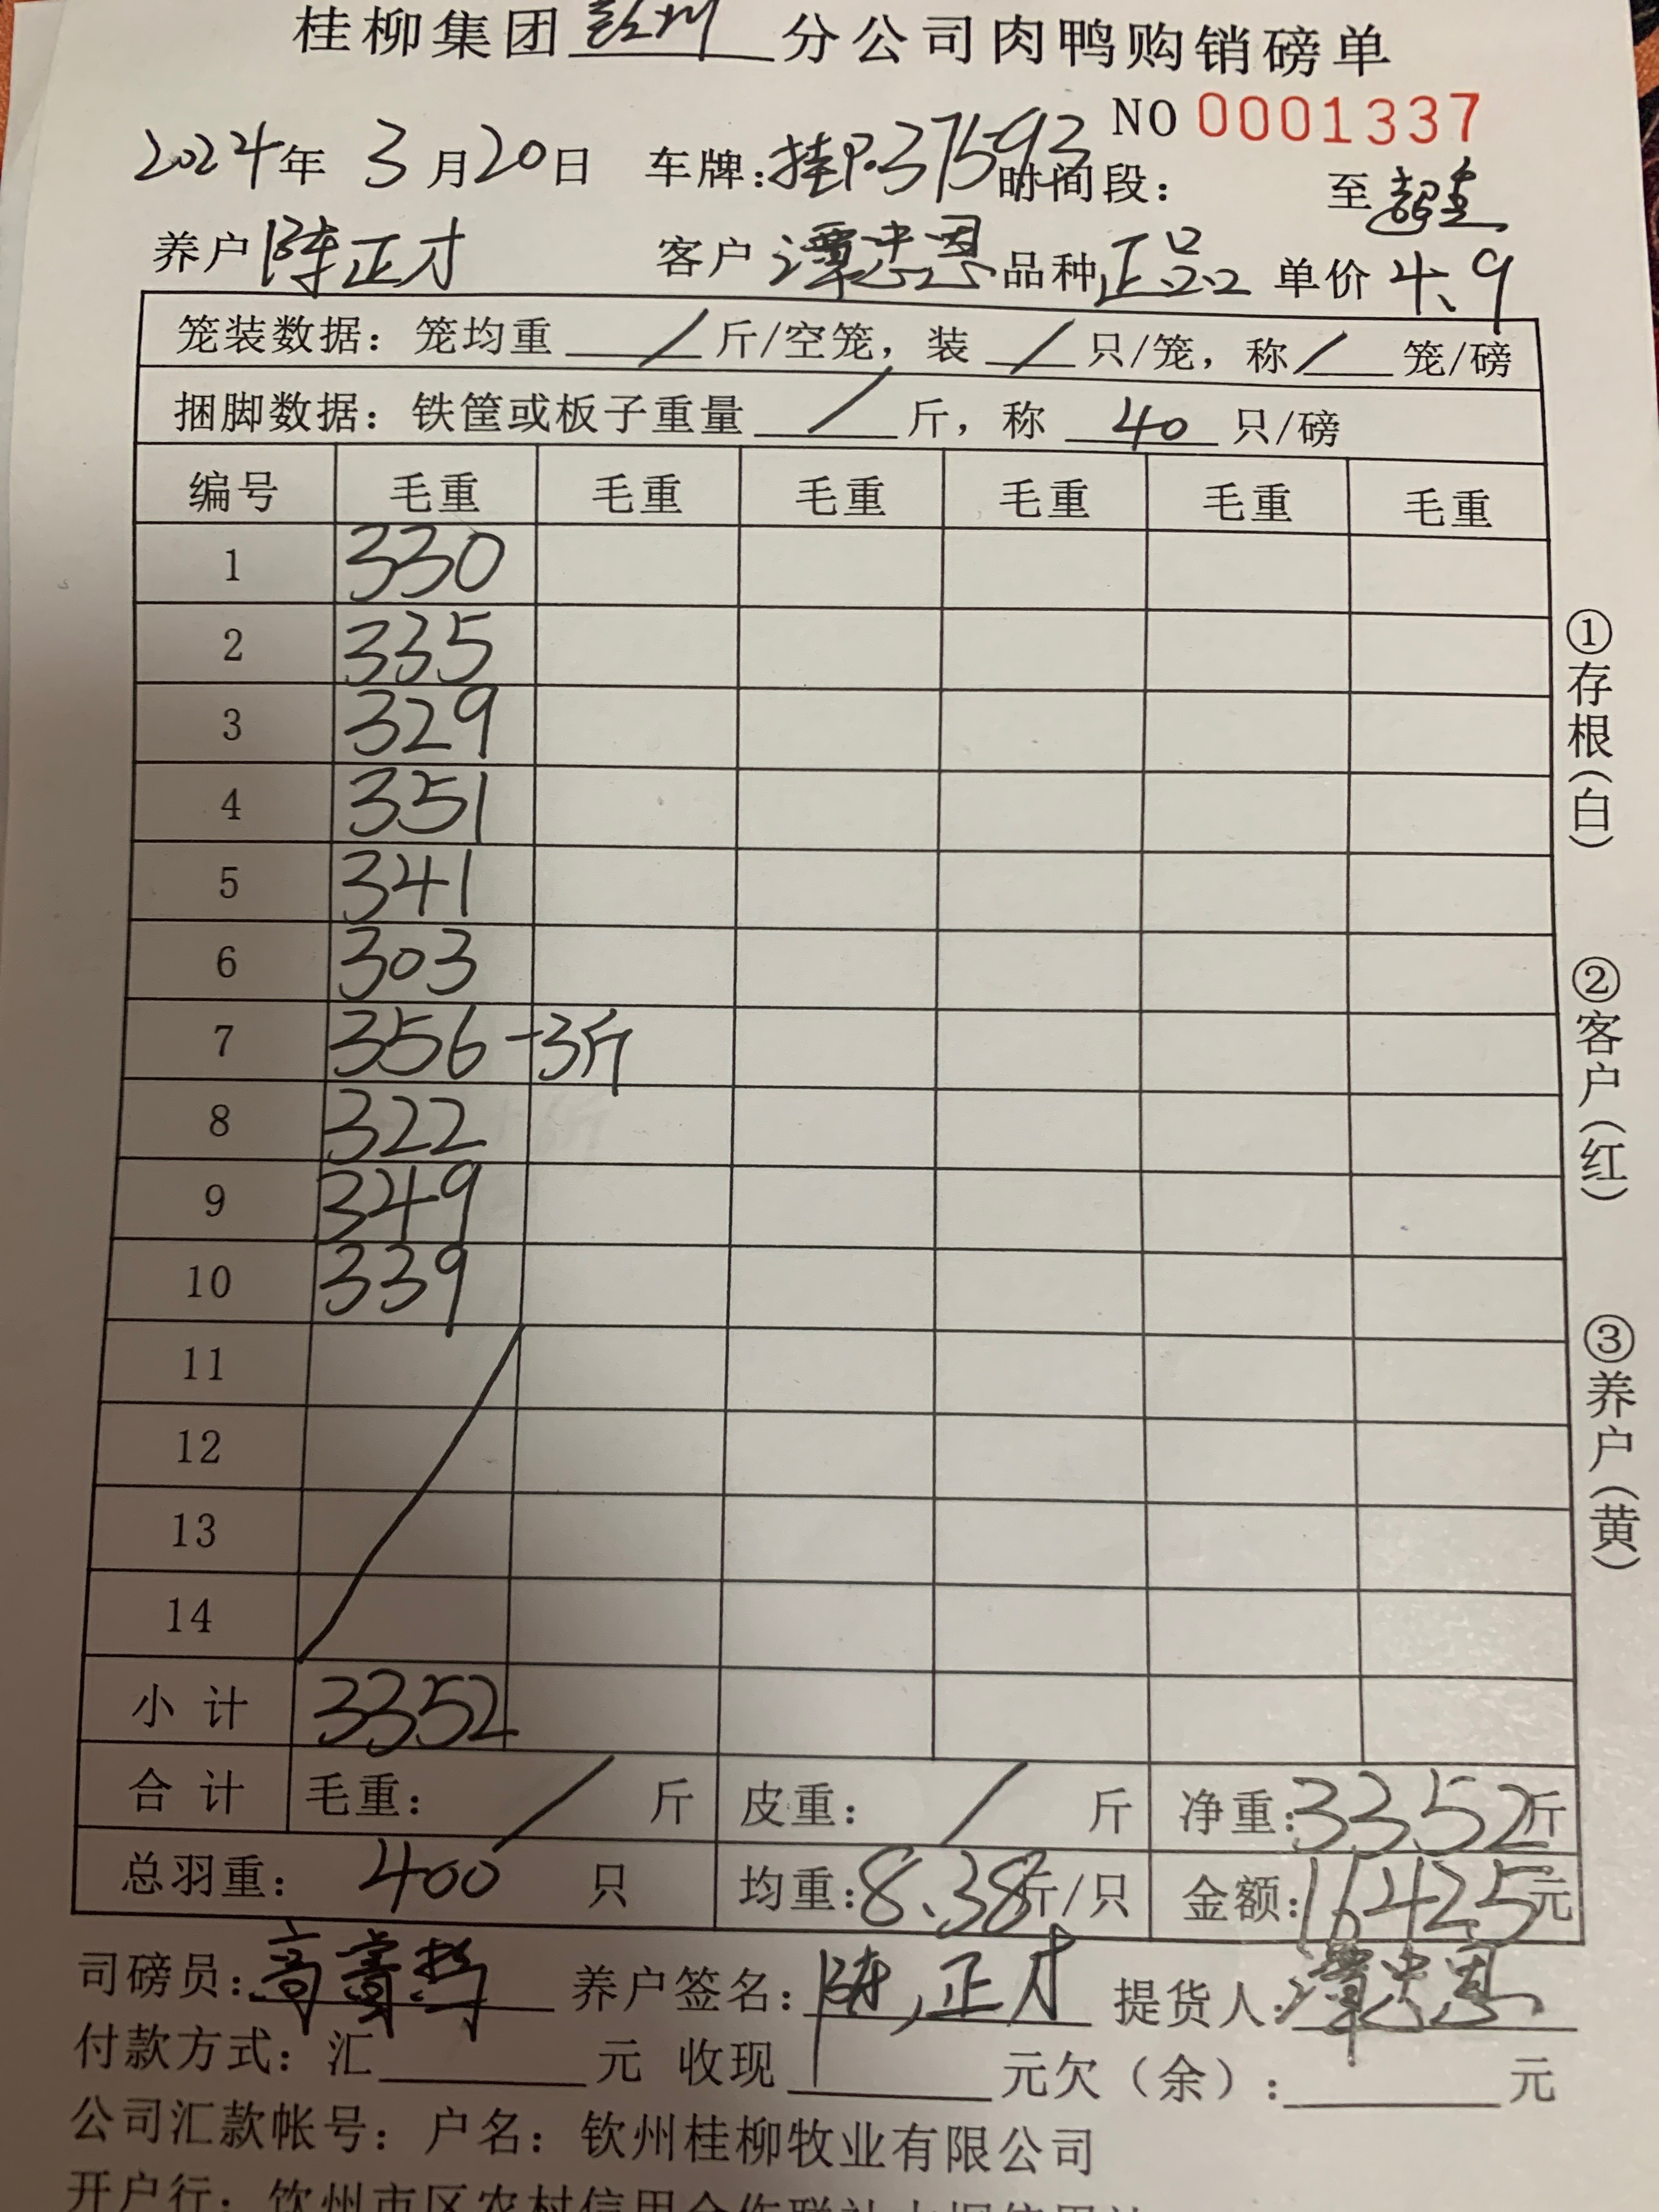 桂柳集团 分公司肉鸭购销磅单
NO 0001337
2024年 3月20日 车牌:桂P.37593 时间段: 至
养户 陈正才 客户 谭忠恩 品种 正品 单价 4.9
笼装数据: 笼均重 / 斤/空笼, 装 / 只/笼, 称 / 笼/磅
捆脚数据: 铁筐或板子重量 / 斤, 称 40 只/磅
编号 毛重 毛重 毛重 毛重 毛重 毛重
1 330
2 335
3 329
4 351
5 341
6 303
7 356 -3斤
8 322
9 349
10 339
11
12
13
14
小计 3352
合计 毛重: / 斤 皮重: / 斤 净重:3352斤
总羽重: 400 只 均重:8.38斤/只 金额:16425元
司磅员: 养户签名:陈正才 提货人:谭忠恩
付款方式: 汇 元 收现 元欠(余): 元
公司汇款帐号: 户名: 钦州桂柳牧业有限公司
开户行: 钦州市区农村信用合作联社
①存根(白)
②客户(红)
③养户(黄)